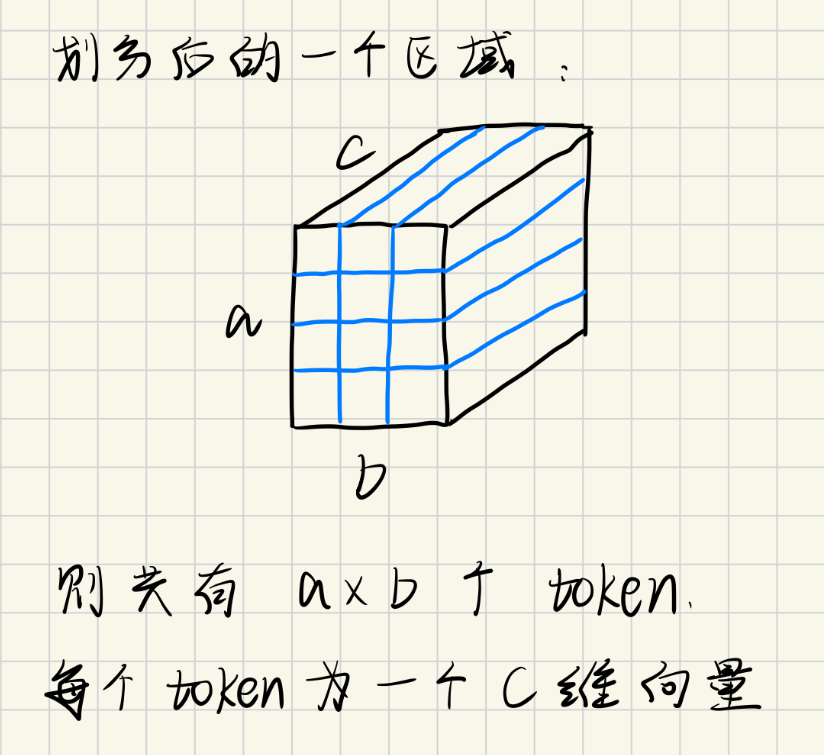 划分后的一个区域:
c
a
b
则共有 a×b 个 token.
每个 token 为一个 C 维向量